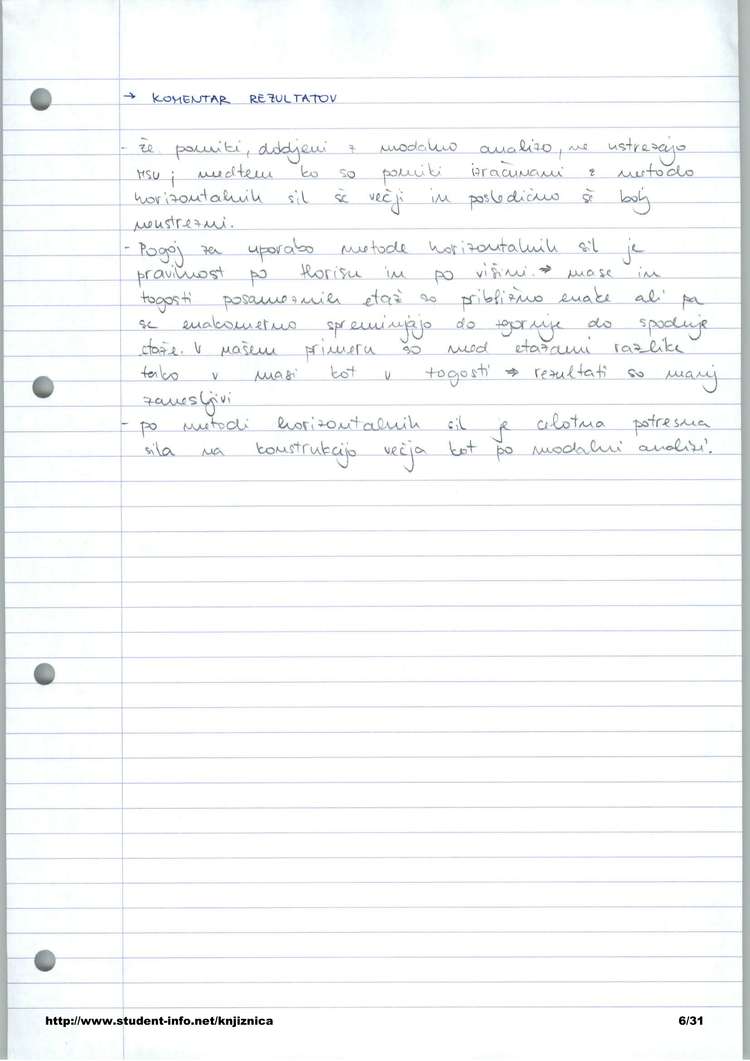 → KOMENTAR REZULTATOV
- že pomiki, dobljeni z modalno analizo, ne ustrezajo
MSU; medtem ko so pomiki izračunani z metodo
horizontalnih sil še večji in posledično še bolj
neustrezni.
- Pogoj za uporabo metode horizontalnih sil je
pravilnost po tlorisu in po višini. → mase in
togosti posameznih etaž so približno enake ali pa
se enakomerno spreminjajo do zgornje do spodnje
etaže. V našem primeru so med etažami razlike
tako v masi kot v togosti → rezultati so manj
zanesljivi
- po metodi horizontalnih sil je celotna potresna
sila na konstrukcijo večja kot po modalni analizi.
http://www.student-info.net/knjiznica 6/31